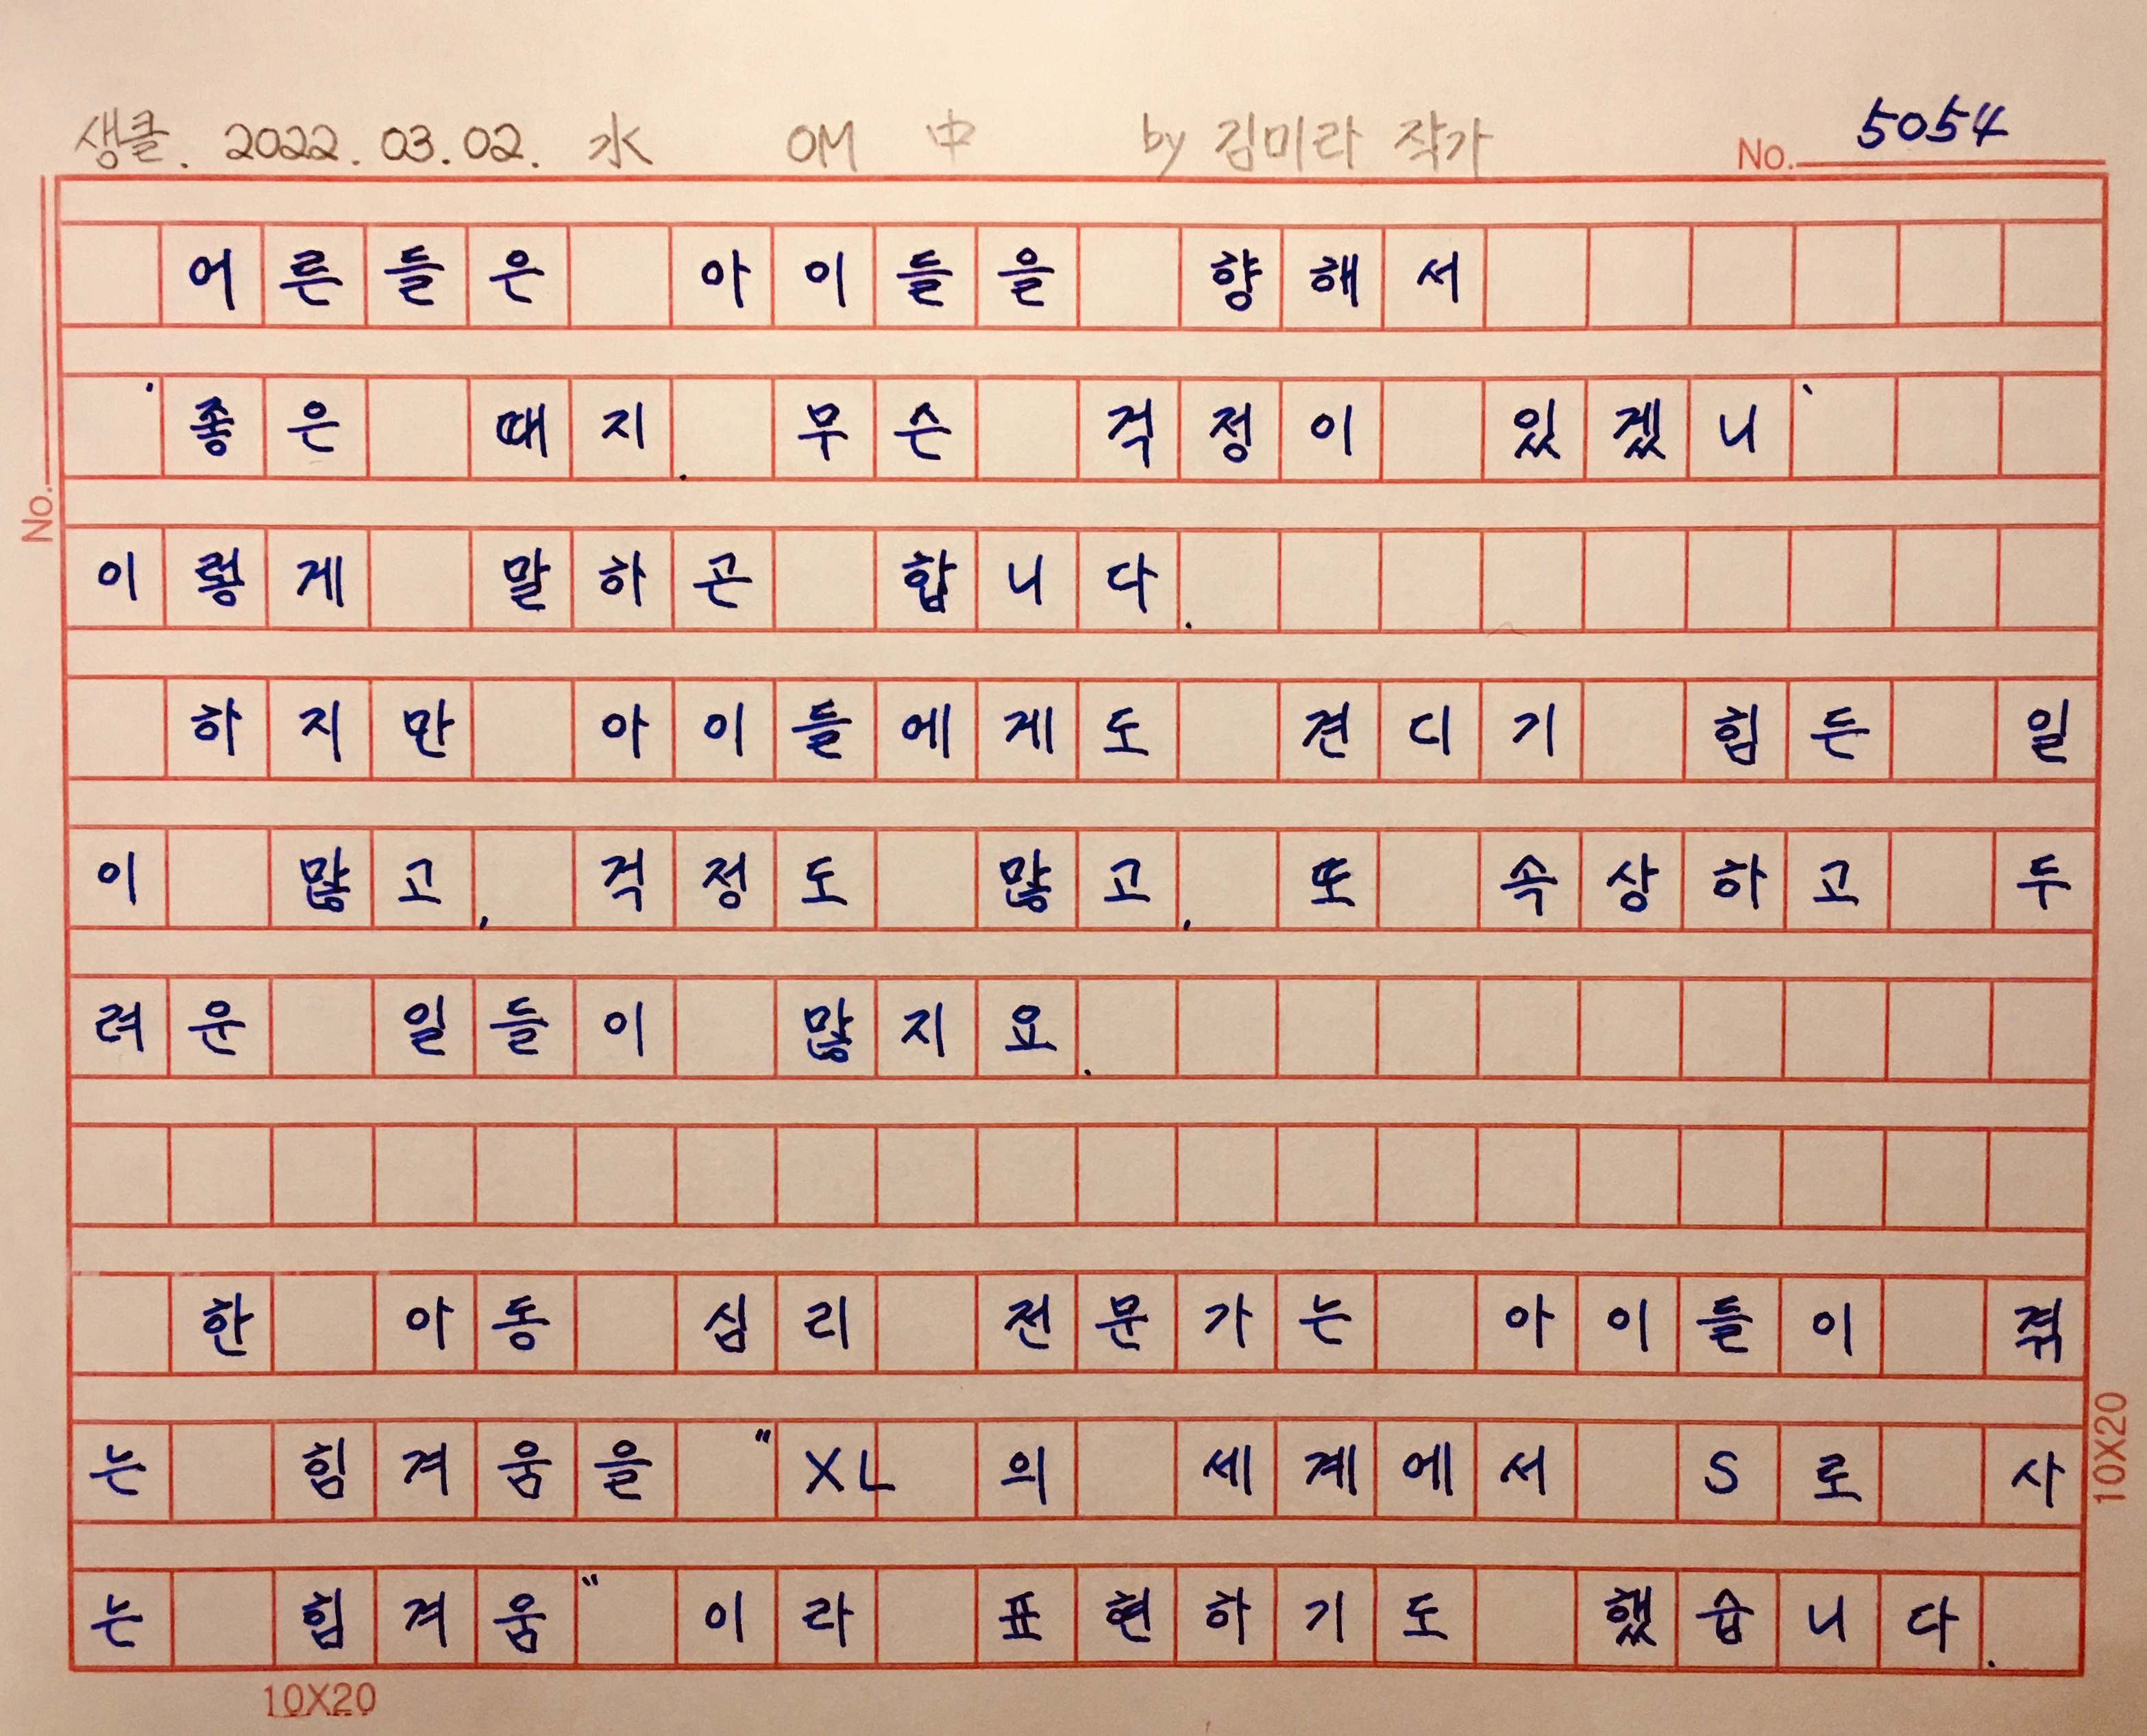 생클. 2022. 03. 02. 水 OM 中 by 김미라 작가 No. 5054
어른들은 아이들을 향해서
'좋은 때지. 무슨 걱정이 있겠니'
이렇게 말하곤 합니다.
하지만 아이들에게도 견디기 힘든 일
이 많고, 걱정도 많고, 또 속상하고 두
려운 일들이 많지요.
한 아동 심리 전문가는 아이들이 겪
는 힘겨움을 "XL의 세계에서 S로 사
는 힘겨움" 이라 표현하기도 했습니다.
No.
10X20
10X20